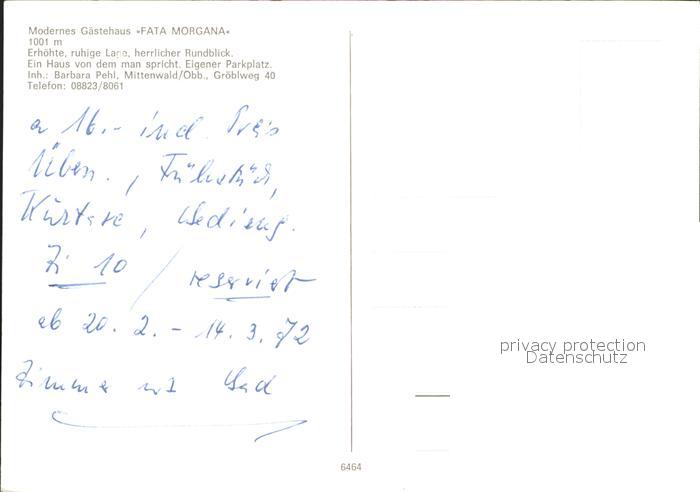 Modernes Gästehaus »FATA MORGANA«
1001 m
Erhöhte, ruhige Lage, herrlicher Rundblick.
Ein Haus von dem man spricht. Eigener Parkplatz.
Inh.: Barbara Pehl, Mittenwald/Obb., Gröblweg 40
Telefon: 08823/8061
a 16.- incl. Preis
Übern., Frühstück,
Kurtaxe, Bedieng.
Zi 10 / reserviert
ab 20. 2. - 14. 3. 72
Zimmer mit Bad
privacy protection
Datenschutz
6464